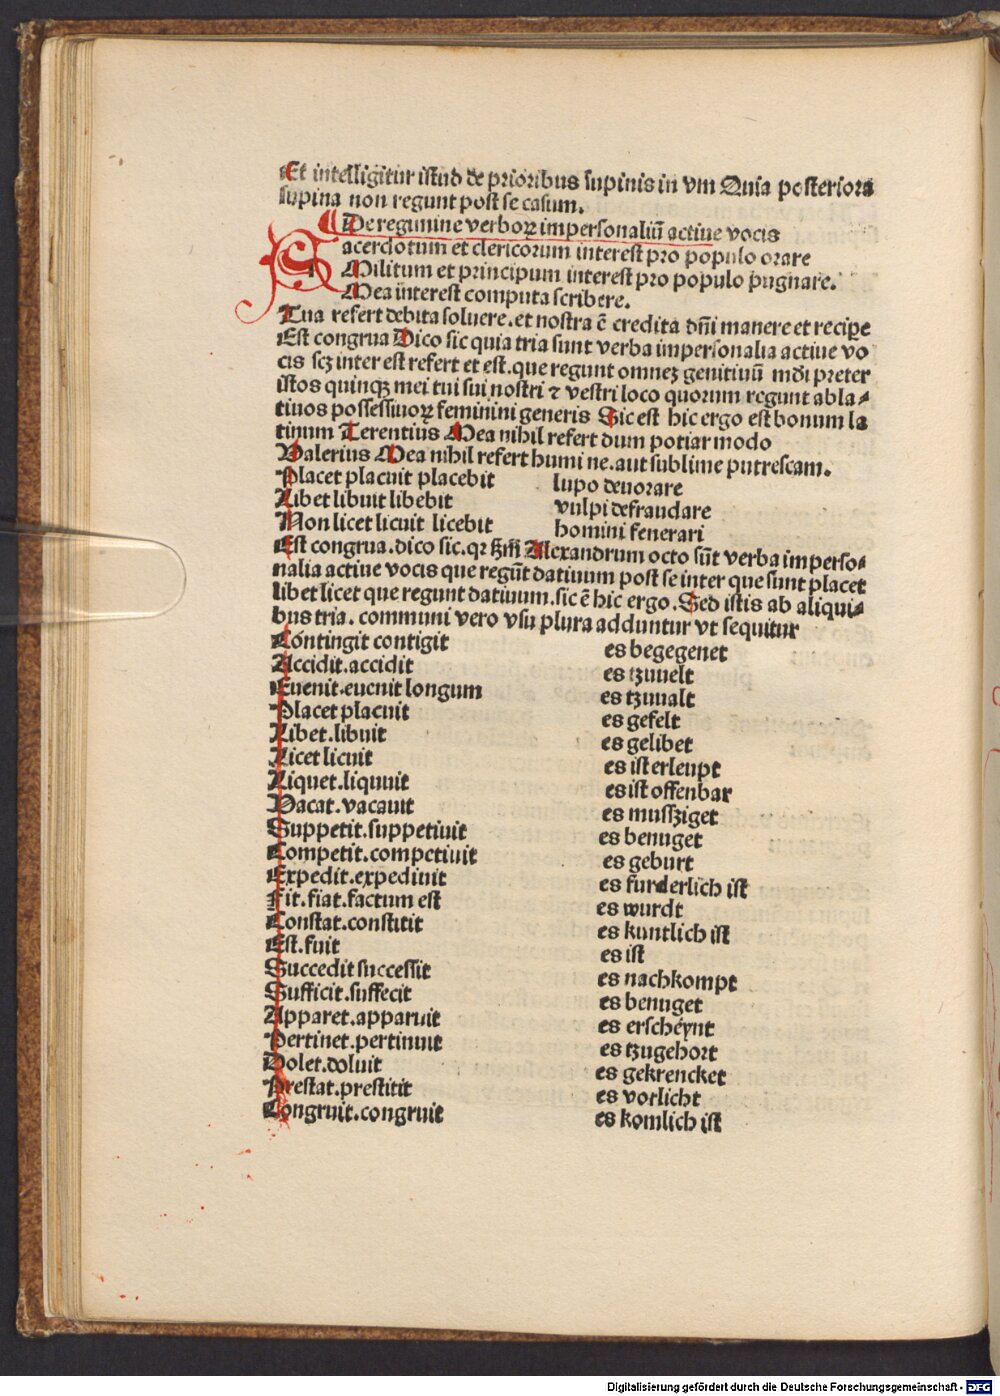 Et intelligitur istud de prioribus supinis in vm Quia posteriora
supina non regunt post se casum.
¶ De regimine verboꝝ impersonaliū actiue vocis
Sacerdotum et clericorum interest pro populo orare
Militum et principum interest pro populo pugnare.
Mea interest computa scribere.
Tua refert debita soluere.et nostra ē credita dn̄i manere et recipe
Est congrua Dico sic quia tria sunt verba impersonalia actiue vo
cis scꝫ inter est refert et est.que regunt omneꝫ genitiuū mōi preter
istos quinqꝫ mei tui sui nostri ⁊ vestri loco quorum regunt abla⸗
tiuos possessiuoꝝ feminini generis Sic est hic ergo est bonum la
tinum Terentius Mea nihil refert dum potiar modo
Valerius Mea nihil refert humi ne.aut sublime putrescam.
Placet placuit placebit lupo deuorare
Libet libuit libebit vulpi defraudare
Non licet licuit licebit homini fenerari
Est congrua.dico sic.qꝛ s̄m Alexandrum octo sūt verba imperso⸗
nalia actiue vocis que regūt datiuum post se inter que sunt placet
libet licet que regunt datiuum.sic ē hic ergo.Sed istis ab aliqui⸗
bus tria. communi vero vsu plura adduntur vt sequitur
Contingit contigit es begegenet
Accidit.accidit es tzuuelt
Euenit.euenit longum es tzuualt
Placet placuit es gefelt
Libet.libuit es gelibet
Licet licuit es ist erleupt
Liquet.liquuit es ist offenbar
Vacat.vacauit es mussziget
Suppetit.suppetiuit es benuget
Competit.competiuit es geburt
Expedit.expediuit es furderlich ist
Fit.fiat.factum est es wurdt
Constat.constitit es kuntlich ist
Est.fuit es ist
Succedit successit es nachkompt
Sufficit.suffecit es benuget
Apparet.apparuit es erscheynt
Pertinet.pertinuit es tzugehort
Dolet.doluit es gekrencket
Prestat.prestitit es vorlicht
Congruit.congruit es komlich ist
Digitalisierung gefördert durch die Deutsche Forschungsgemeinschaft - DFG